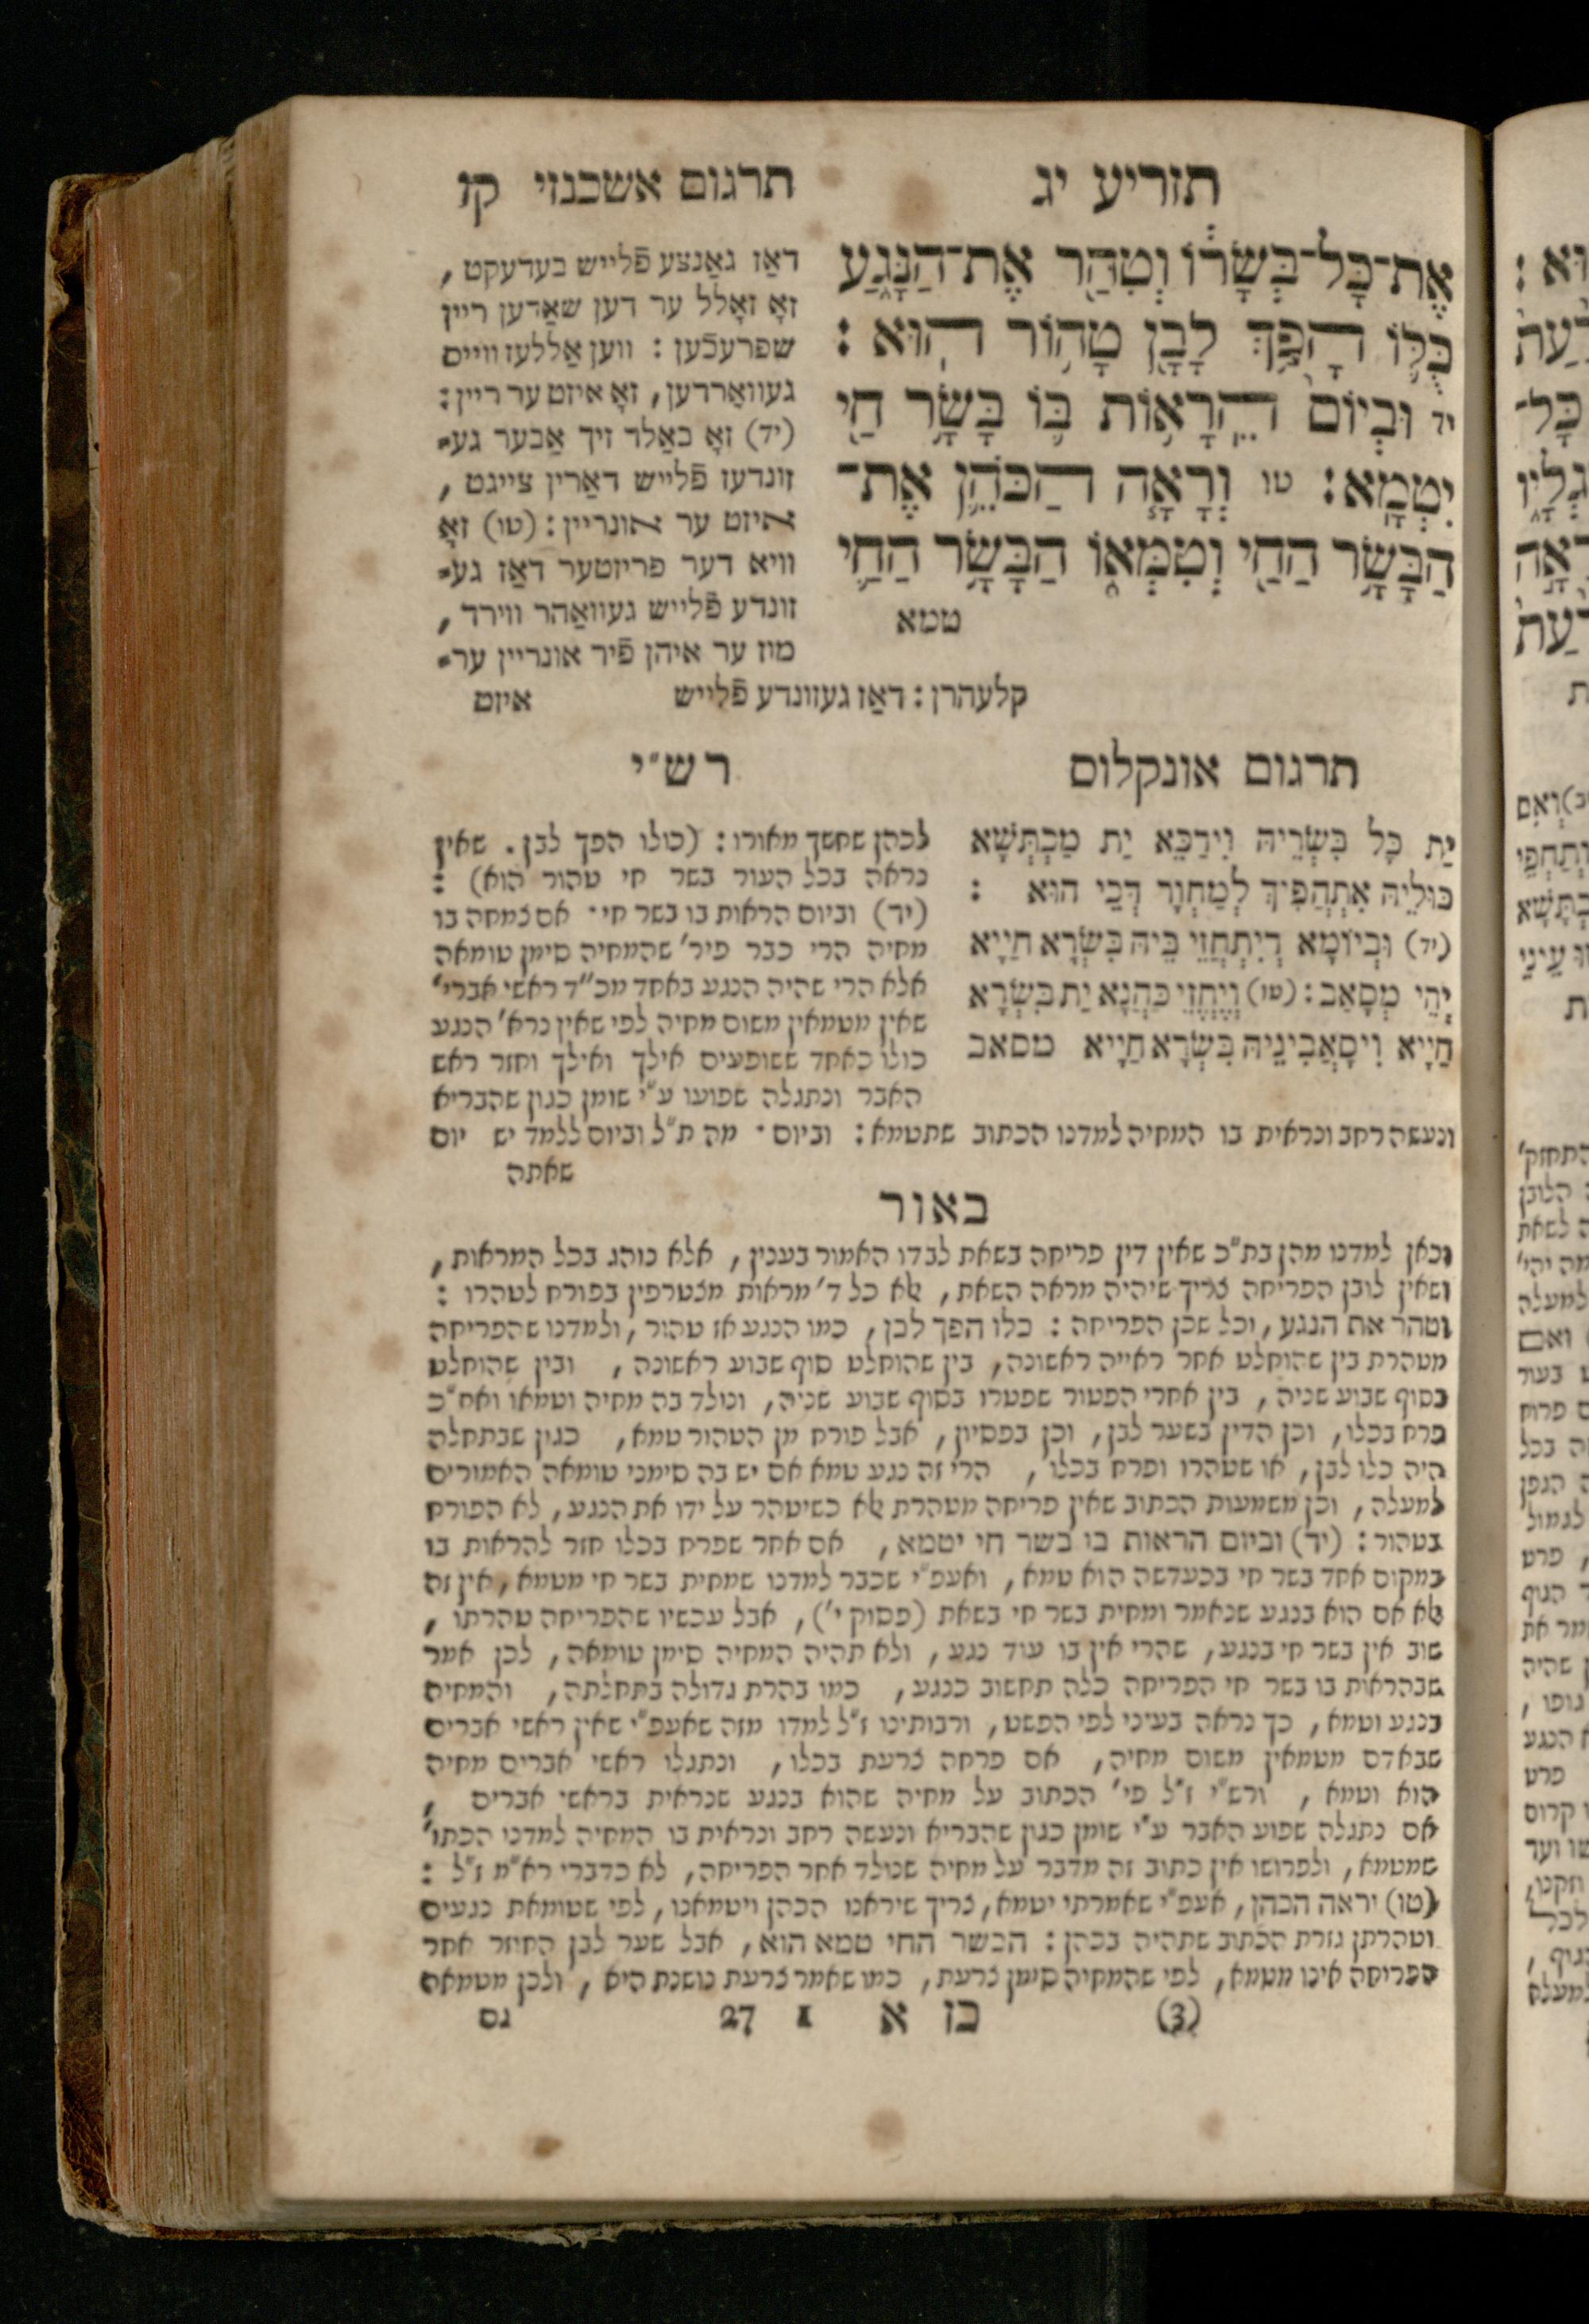 תזריע יג
תרגום אשכנזי קו
אֶת־כָּל־בְּשָׂרוֹ֒ וְטִהַ֖ר אֶת־הַנָּ֑גַע
כֻּלּ֛וֹ הָפַ֥ךְ לָבָ֖ן טָה֥וֹר הֽוּא׃
יד וּבְיוֹם֩ הֵרָא֥וֹת בּ֛וֹ בָּשָׂ֥ר חַ֖י
יִטְמָֽא׃ טו וְרָאָ֧ה הַכֹּהֵ֛ן אֶת־
הַבָּשָׂ֥ר הַחַ֖י וְטִמְּא֑וֹ הַבָּשָׂ֥ר הַחַ֛י
טמא
דאַז גאַנצע פֿלייש בעדעקט,
זאָ זאָלל ער דען שאַדען ריין
שפרעכֿען: ווען אַללעז ווייס
געוואָרדען, זאָ איזט ער ריין:
(יד) זאָ באַלד זיך אַבער גע־
זונדעז פֿלייש דאַרין צייגט,
איזט ער אונריין: (טו) זאָ
וויא דער פריזטער דאַז גע־
זונדע פֿלייש געוואַהר ווירד,
מוז ער איהן פֿיר אונריין ער־
קלעהרן: דאַז געזונדע פֿלייש איזט
תרגום אונקלוס
יַת כָּל בִּשְׂרֵיהּ וִידַכֵּא יַת מַכְתְּשָׁא
כּוּלֵיהּ אִתְהֲפִיךְ לְמִחְוָר דְּכֵי הוּא :
(יד) וּבְיוֹמָא דְיִתְחֲזֵי בֵּיהּ בִּשְׂרָא חַיָיא
יְהֵי מְסָאַב: (טו) וְיֶחֱזֵי כַּהֲנָא יַת בִּשְׂרָא
חַיָיא וִיסָאֲבִינֵיהּ בִּשְׂרָא חַיָיא מסאב
רש״י
לכהן שחשך מאורו: (כולו הפך לבן. שאין
נראה בכל העור בשר חי טהור הוא) :
(יד) וביום הראות בו בשר חי· אם צמחה בו
מחיה הרי כבר פיר׳ שהמחיה סימן טומאה
אלא הרי שהיה הנגע באחד מכ״ד ראשי אברי׳
שאין מטמאין משום מחיה לפי שאין נרא׳ הנגע
כולו כאחד ששופעים אילך ואילך וחזר ראש
האבר ונתגלה שפועו ע״י שומן כגון שהבריא
ונעשה רחב ונראית בו המחיה למדנו הכתוב שתטמא: וביום· מה ת״ל וביום ללמד יש יום
שאתה
באור
וכאן למדנו מהן בת״כ שאין דין פריחה בשאת לבדו האמור בענין, אלא נוהג בכל המראות,
ושאין לובן הפריחה צריך שיהיה מראה השאת, אלא כל ד׳ מראות מצטרפין בפורח לטהרו:
וטהר את הנגע, וכל שכן הפריחה: כלו הפך לבן, כמו הנגע אז טהור, ולמדנו שהפריחה
מטהרת בין שהוחלט אחר ראייה ראשונה, בין שהוחלט סוף שבוע ראשונה, ובין שהוחלט
בסוף שבוע שניה, בין אחרי הפטור שפטרו בסוף שבוע שניה, ונולד בה מחיה וטמאו ואח״כ
פרח בכלו, וכן הדין בשער לבן, וכן בפסיון, אבל פורח מן הטהור טמא, כגון שבתחלה
היה כלו לבן, או שטהרו ופרח בכלו, הרי זה נגע טמא אם יש בה סימני טומאה האמורים
למעלה, וכן משמעות הכתוב שאין פריחה מטהרת אלא כשיטהר על ידו את הנגע, לא הפורח
בטהור: (יד) וביום הראות בו בשר חי יטמא, אם אחר שפרח בכלו חזר להראות בו
במקום אחד בשר חי בכעדשה הוא טמא, ואעפ״י שכבר למדנו שמחית בשר חי מטמא, אין זה
אלא אם הוא בנגע שנאמר ומחית בשר חי בשאת (פסוק י׳), אבל עכשיו שהפריחה טהרתו,
שוב אין בשר חי בנגע, שהרי אין בו עוד נגע, ולא תהיה המחיה סימן טומאה, לכן אמר
שבהראות בו בשר חי הפריחה כלה תחשוב כנגע, כמו בהרת גדולה בתחלתה, והמחיה
בנגע וטמא, כך נראה בעיני לפי הפשט, ורבותינו ז״ל למדו מזה שאעפ״י שאין ראשי אברים
שבאדם מטמאין משום מחיה, אם פרחה צרעת בכלו, ונתגלו ראשי אברים מחיה
הוא וטמא, ורש״י ז״ל פי׳ הכתוב על מחיה שהוא בנגע שנראית בראשי אברים,
אם נתגלה שפוע האבר ע״י שומן כגון שהבריא ונעשה רחב ונראית בו המחיה למדנו הכתו׳
שמטמא, ולפרושו אין כתוב זה מדבר על מחיה שנולד אחר הפריחה, לא כדברי רא״מ ז״ל:
(טו) וראה הכהן, אעפ״י שאמרתי יטמא, צריך שיראנו הכהן ויטמאנו, לפי שטומאת נגעים
וטהרתן גזרת הכתוב שתהיה בכהן: הבשר החי טמא הוא, אבל שער לבן החוזר אחר
הפריחה אינו מטמא, לפי שהמחיה סימן צרעת, כמו שאמר צרעת נושנת היא, ולכן מטמאה
(3) כז א 1 27 גם